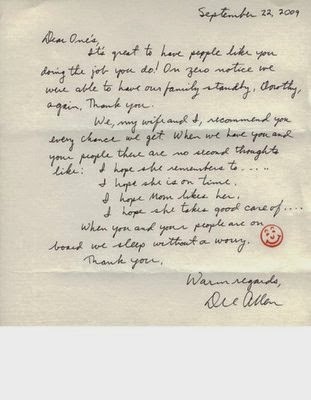 September 22, 2009
Dear One's,
It's great to have people like you
doing the job you do! On zero notice we
were able to have our family standby, Dorothy,
again. Thank you.
We, my wife and I, recommend you
every chance we get. When we have you and
your people there are no second thoughts
like: I hope she remembers to.....
I hope she is on time.
I hope Mom likes her.
I hope she takes good care of....
When you and your people are on
board we sleep without a worry.
Thank you.
Warm regards,
Allen